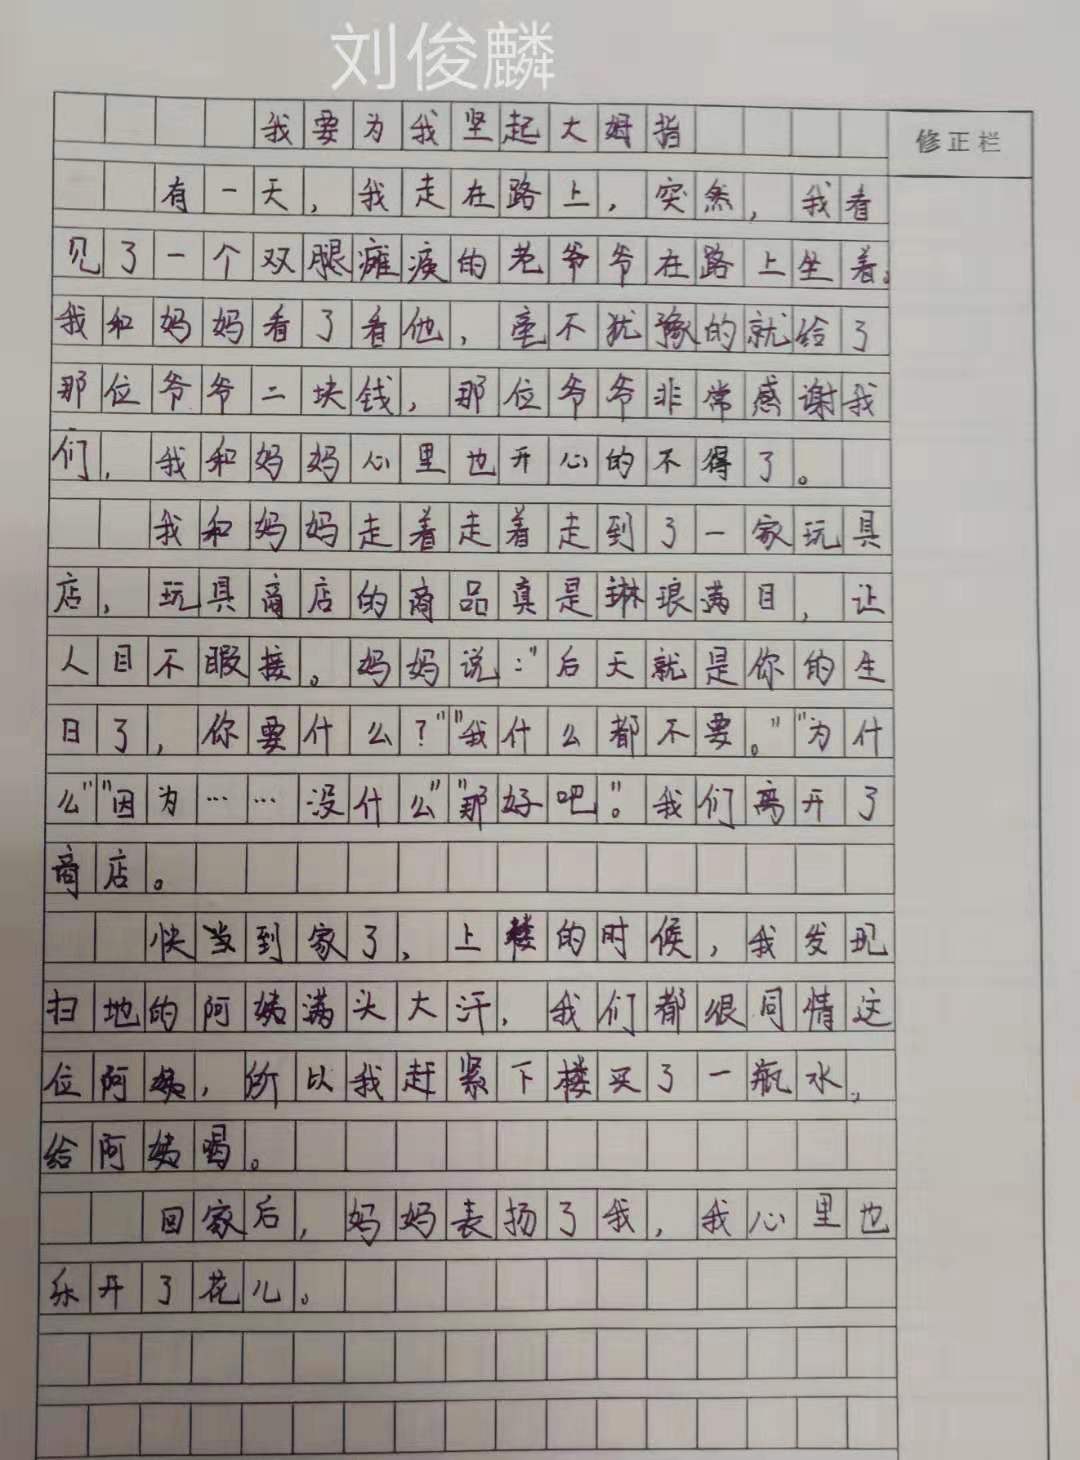 刘俊麟
我要为我坚起大姆指
修正栏
有一天，我走在路上，突然，我看
见了一个双腿瘫痪的老爷爷在路上坐着。
我和妈妈看了看他，毫不犹豫的就给了
那位爷爷二块钱，那位爷爷非常感谢我
们，我和妈妈心里也开心的不得了。
我和妈妈走着走着走到了一家玩具
店，玩具商店的商品真是琳琅满目，让
人目不暇接。妈妈说："后天就是你的生
日了，你要什么？""我什么都不要。""为什
么""因为……没什么""那好吧"。我们离开了
商店。
快当到家了，上楼的时候，我发现
扫地的阿姨满头大汗，我们都很同情这
位阿姨，所以我赶紧下楼买了一瓶水，
给阿姨喝。
回家后，妈妈表扬了我，我心里也
乐开了花儿。